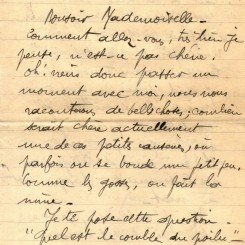 Bonsoir Mademoiselle -
Comment allez vous, très bien je
pense, n'est-ce pas chérie.
Oh! viens donc passer un
moment avec moi, nous nous
raconterons de belles choses, combien
serait chère actuellement
une de ces petites causeries, où
parfois on se boude une petit peu,
comme les gosses, on fait la
mine -
Je te pose cette question -
"Quel est le comble du poilu"